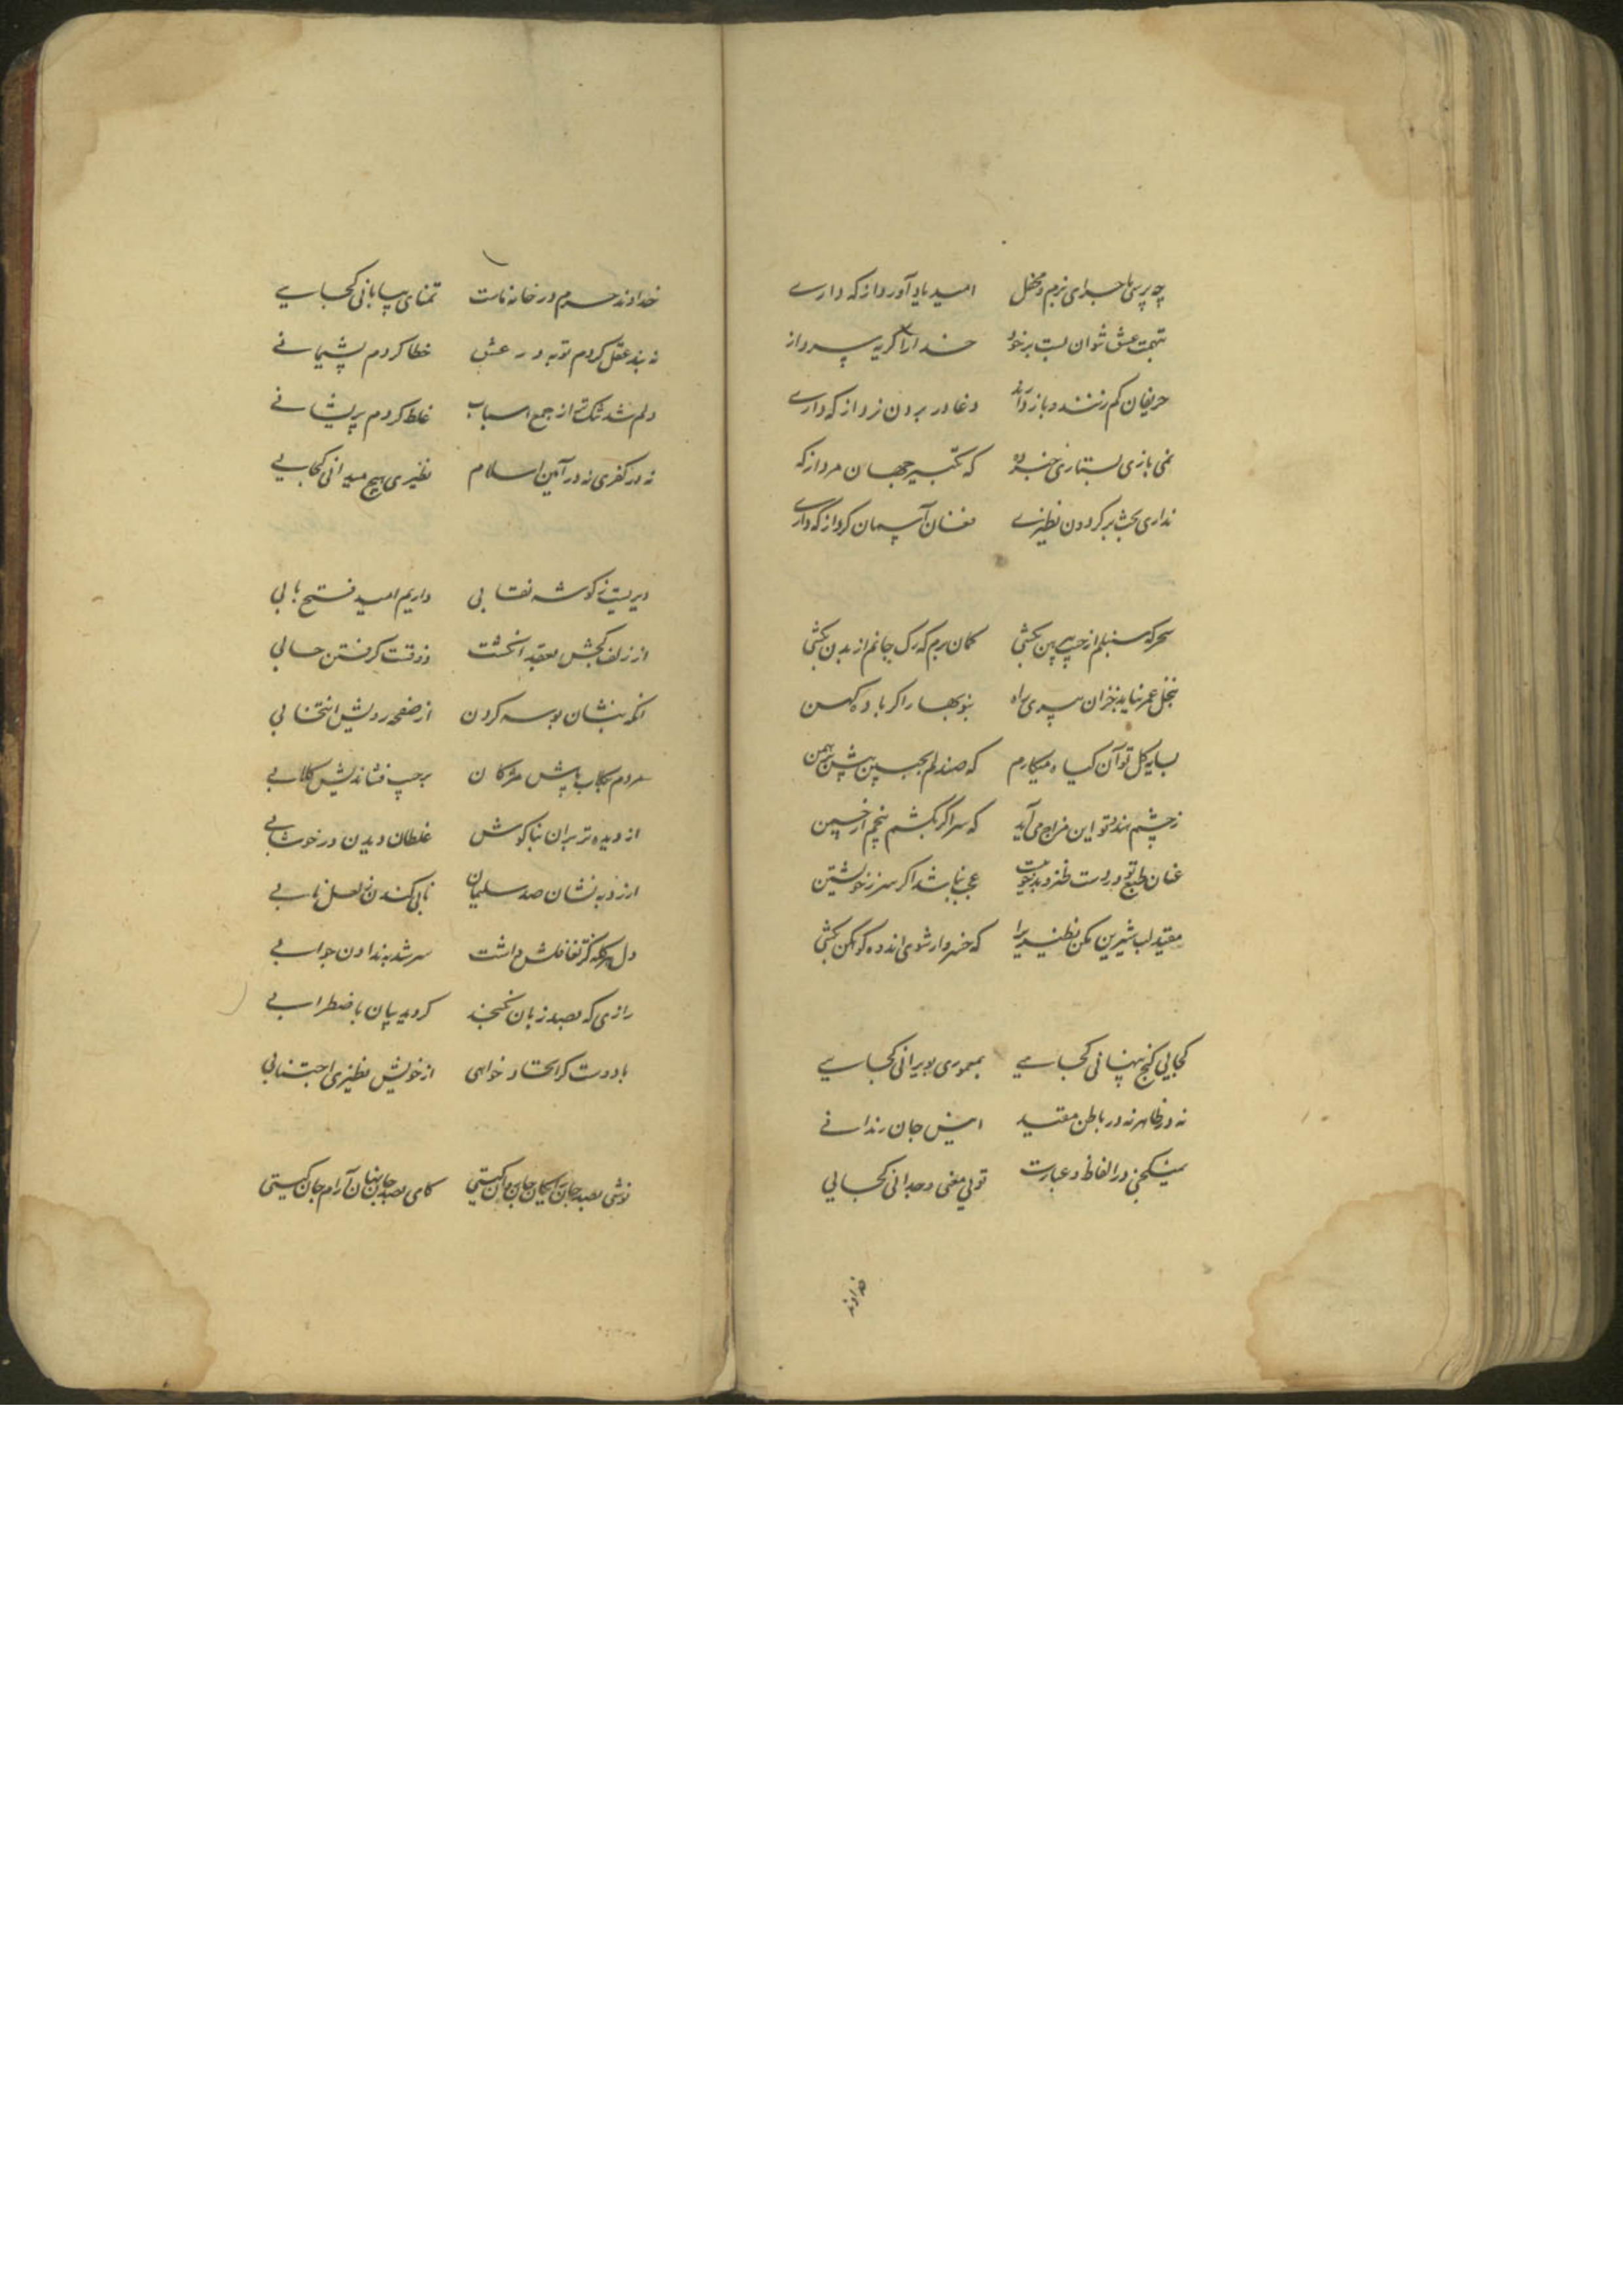 چه پرسی ماجرای بزم و محفل امید یاد آور داز که داری
تهمت عشق نتوان بست بر خود خدا را گریه پرداز
حریفان کم زنند و باز دانند دغا در بردن نرد از که داری
نمی بازی بستاری که تکبیر جهان مرد از که
نداری بحث بر گردون نظیری فغان آسمان گرد از که داری
سحر که سنبلم از جیب پیرهن بکشی گمان برم که رگ جانم از بدن بکشی
بنخل عمر نیاید خزان پیری راه بنو بهار اگر باده کهن
بسایه گل تو آن گیاه میکارم که صندلم بجبین پیش برهمن
ز چشم هندو تو این مزاج می آید که سر اگر بکشم پنجم از چین
عنان طبع تو در دست طنز و بدخوئیست عجب نباشد اگر سر ز خویشتن
مقید لب شیرین مکن نظیری را که خسرو ار شوی اندوه کوهکن بکشی
کجایی گنج پنهانی کجایی بمعموری بویرانی کجایی
نه در ظاهر نه در باطن مقید انیس جان رندانی
نمیگنجی در الفاظ و عبارت تویی معنی وجدانی کجایی
خداوند
خداوند حرم در خانه ماست تمنای بیابانی کجایی
نه بند عقل کردم توبه در عشق خطا کردم پشیمانی
دلم شد تنگ از جمع اسباب غلط کردم پریشانی
نه در کفری نه در آیین اسلام نظیری هیچ میدانی کجایی
دیریست ز گوشه نقابی داریم امید فتح بابی
از زلف کجش بعقد انگشت ذوقست گرفتن حسابی
انگه بنشان بوسه کردن از صفحه رویش انتخابی
مردم بگلاب پاش مژگان بر جیب فشاندیش گلابی
از دیده تر بران بناگوش غلطان دیدن در خوشابی
ارزد به نشان صد سلیمان نابی کندن ز لعل نابی
دل هر گله کز تغافلش داشت سر شد به ندادن جوابی
رازی که بصد زبان نگنجد گردید بیان باضطرابی
با دوست گر اتحاد خواهی از خویش نظیری اجتنابی
نوشی بصد جان رایگان جان من کیستی کامی بصد جان پنهان آرام جان کیستی